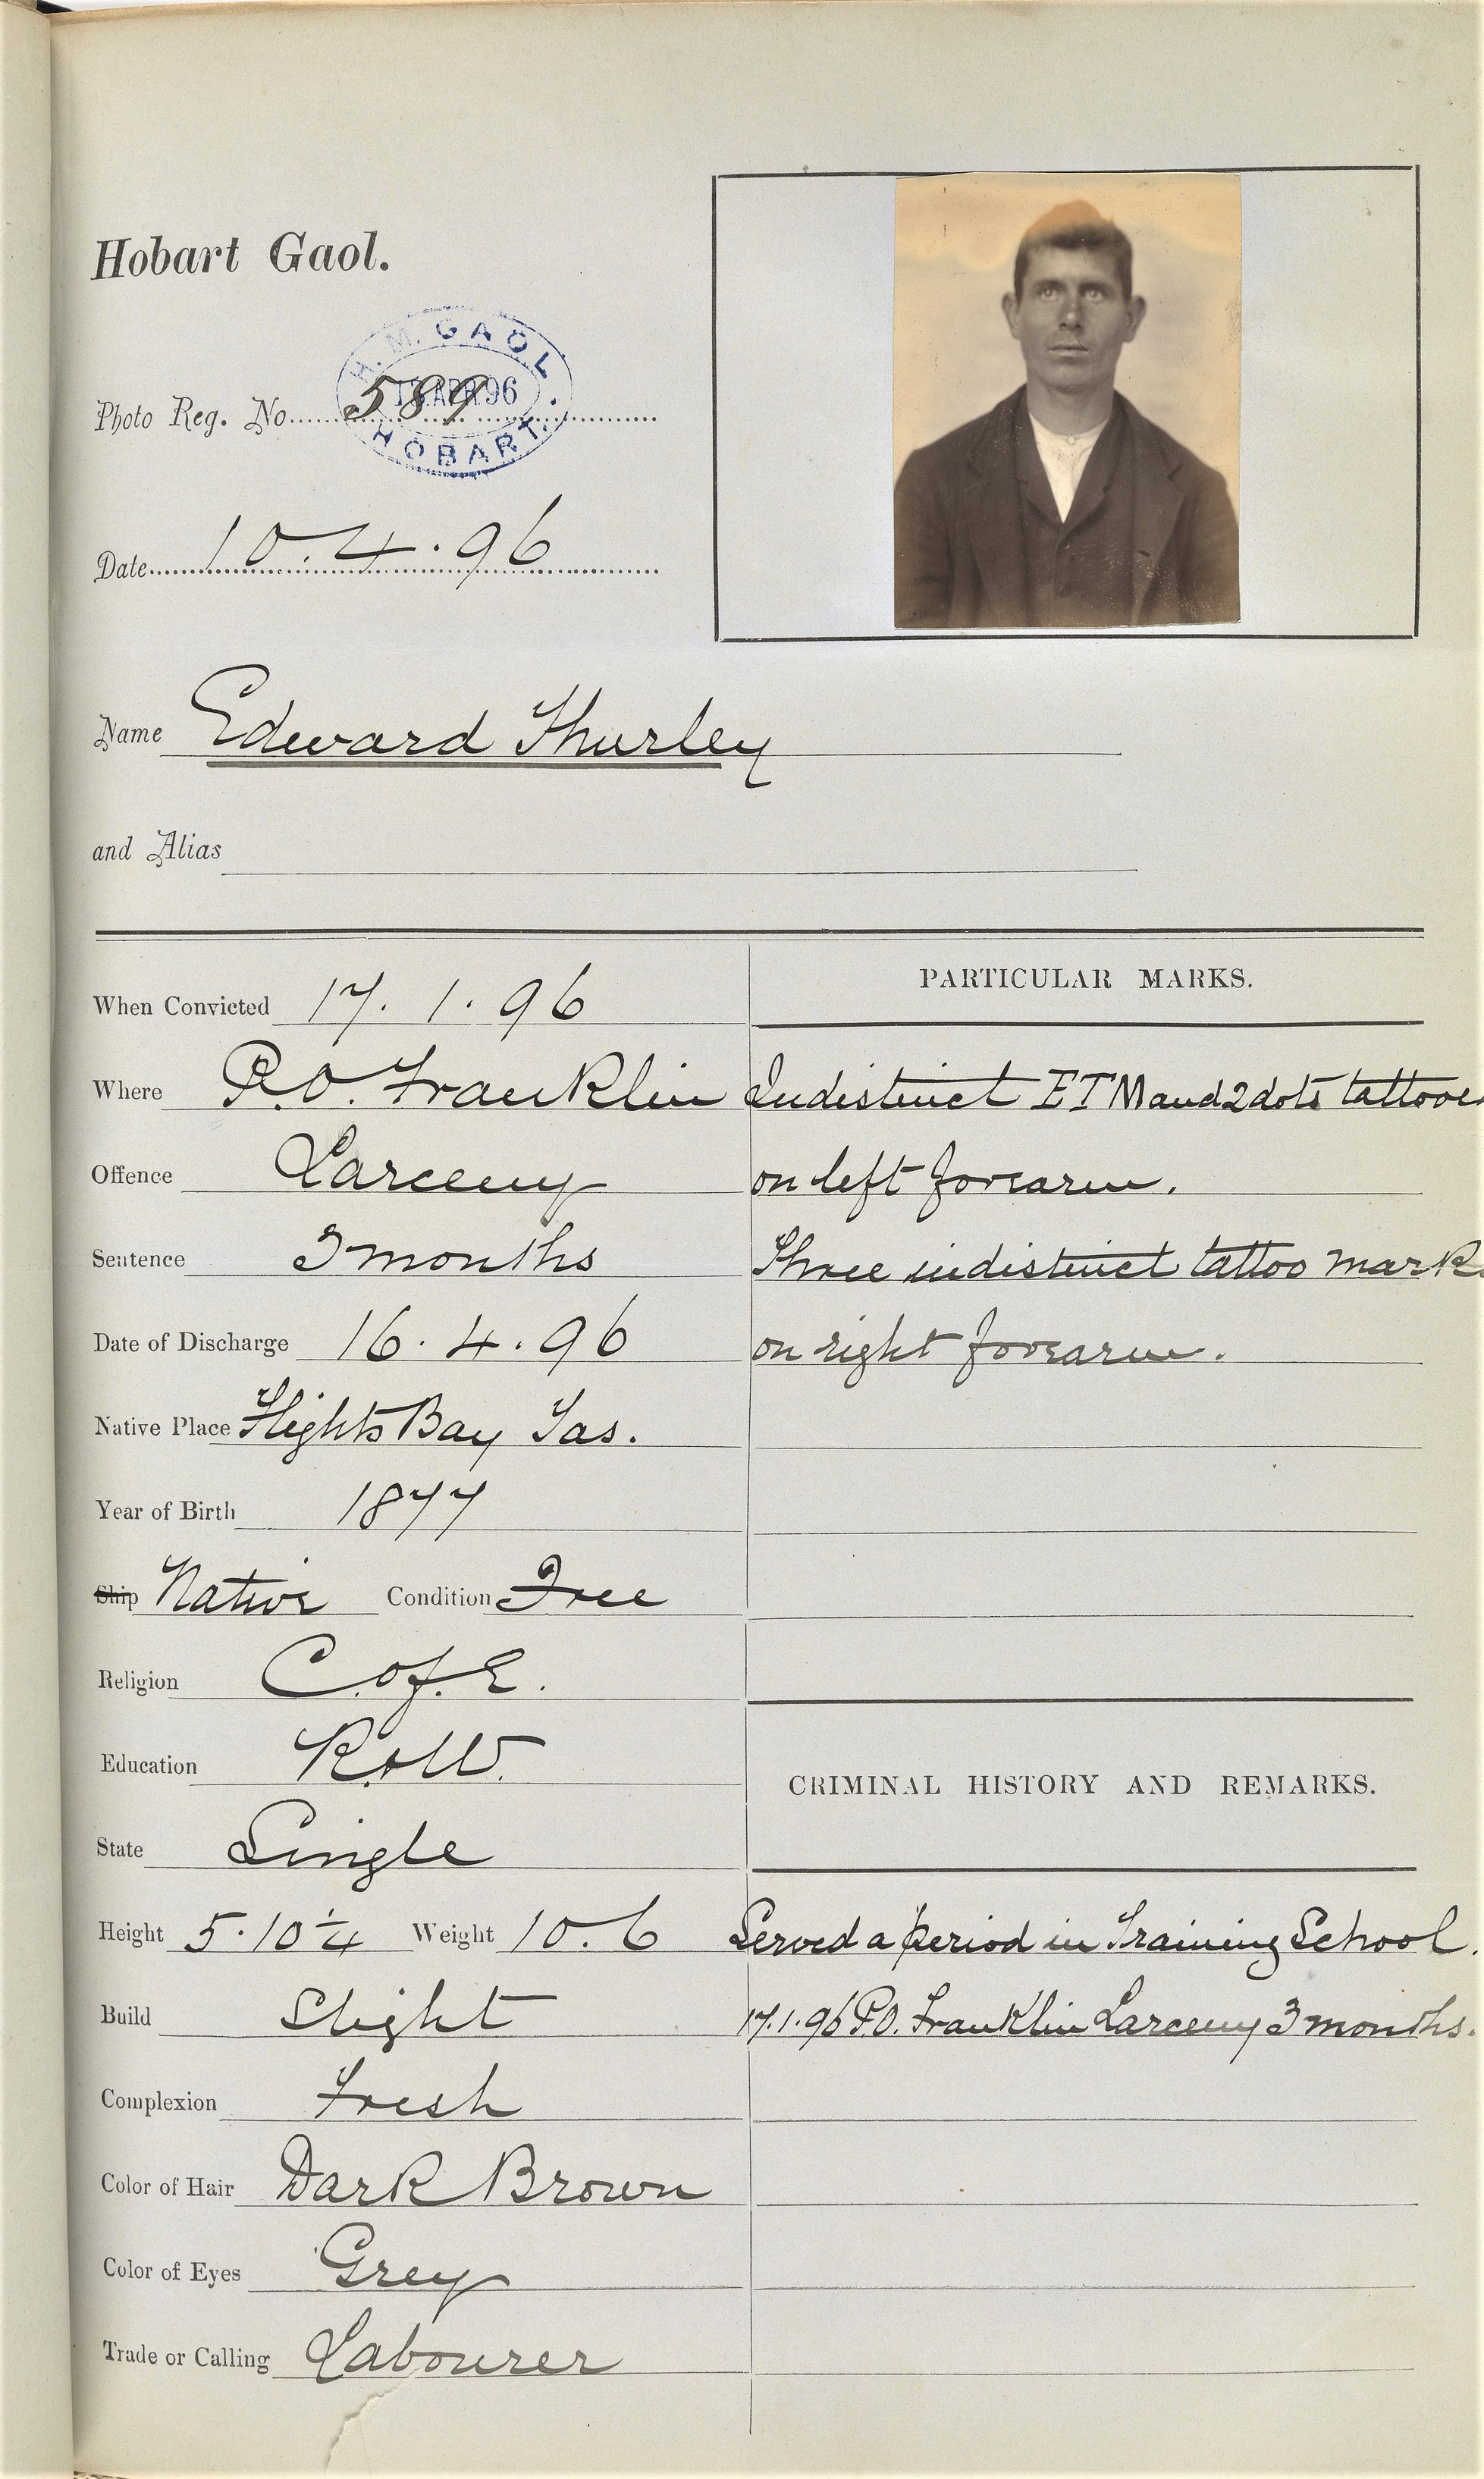 Hobart Gaol.
H. M. GAOL.
APR. 96
HOBART
Photo Reg. No. 589
Date 10.4.96
Name Edward Thurley
and Alias
When Convicted 17.1.96
Where P.O. Franklin
Offence Larceny
Sentence 3 months
Date of Discharge 16.4.96
Native Place Flights Bay Tas.
Year of Birth 1877
Ship Native Condition Free
Religion C. of. E.
Education R & W.
State Single
Height 5.10 1/4 Weight 10.6
Build Slight
Complexion Fresh
Color of Hair Dark Brown
Color of Eyes Grey
Trade or Calling Labourer
PARTICULAR MARKS.
Indistinct ETM and 2 dots
on left forearm.
Three indistinct tattoo mark
on right forearm.
CRIMINAL HISTORY AND REMARKS.
Served a period in Training School.
17.1.96 P.O. Franklin Larceny 3 months.